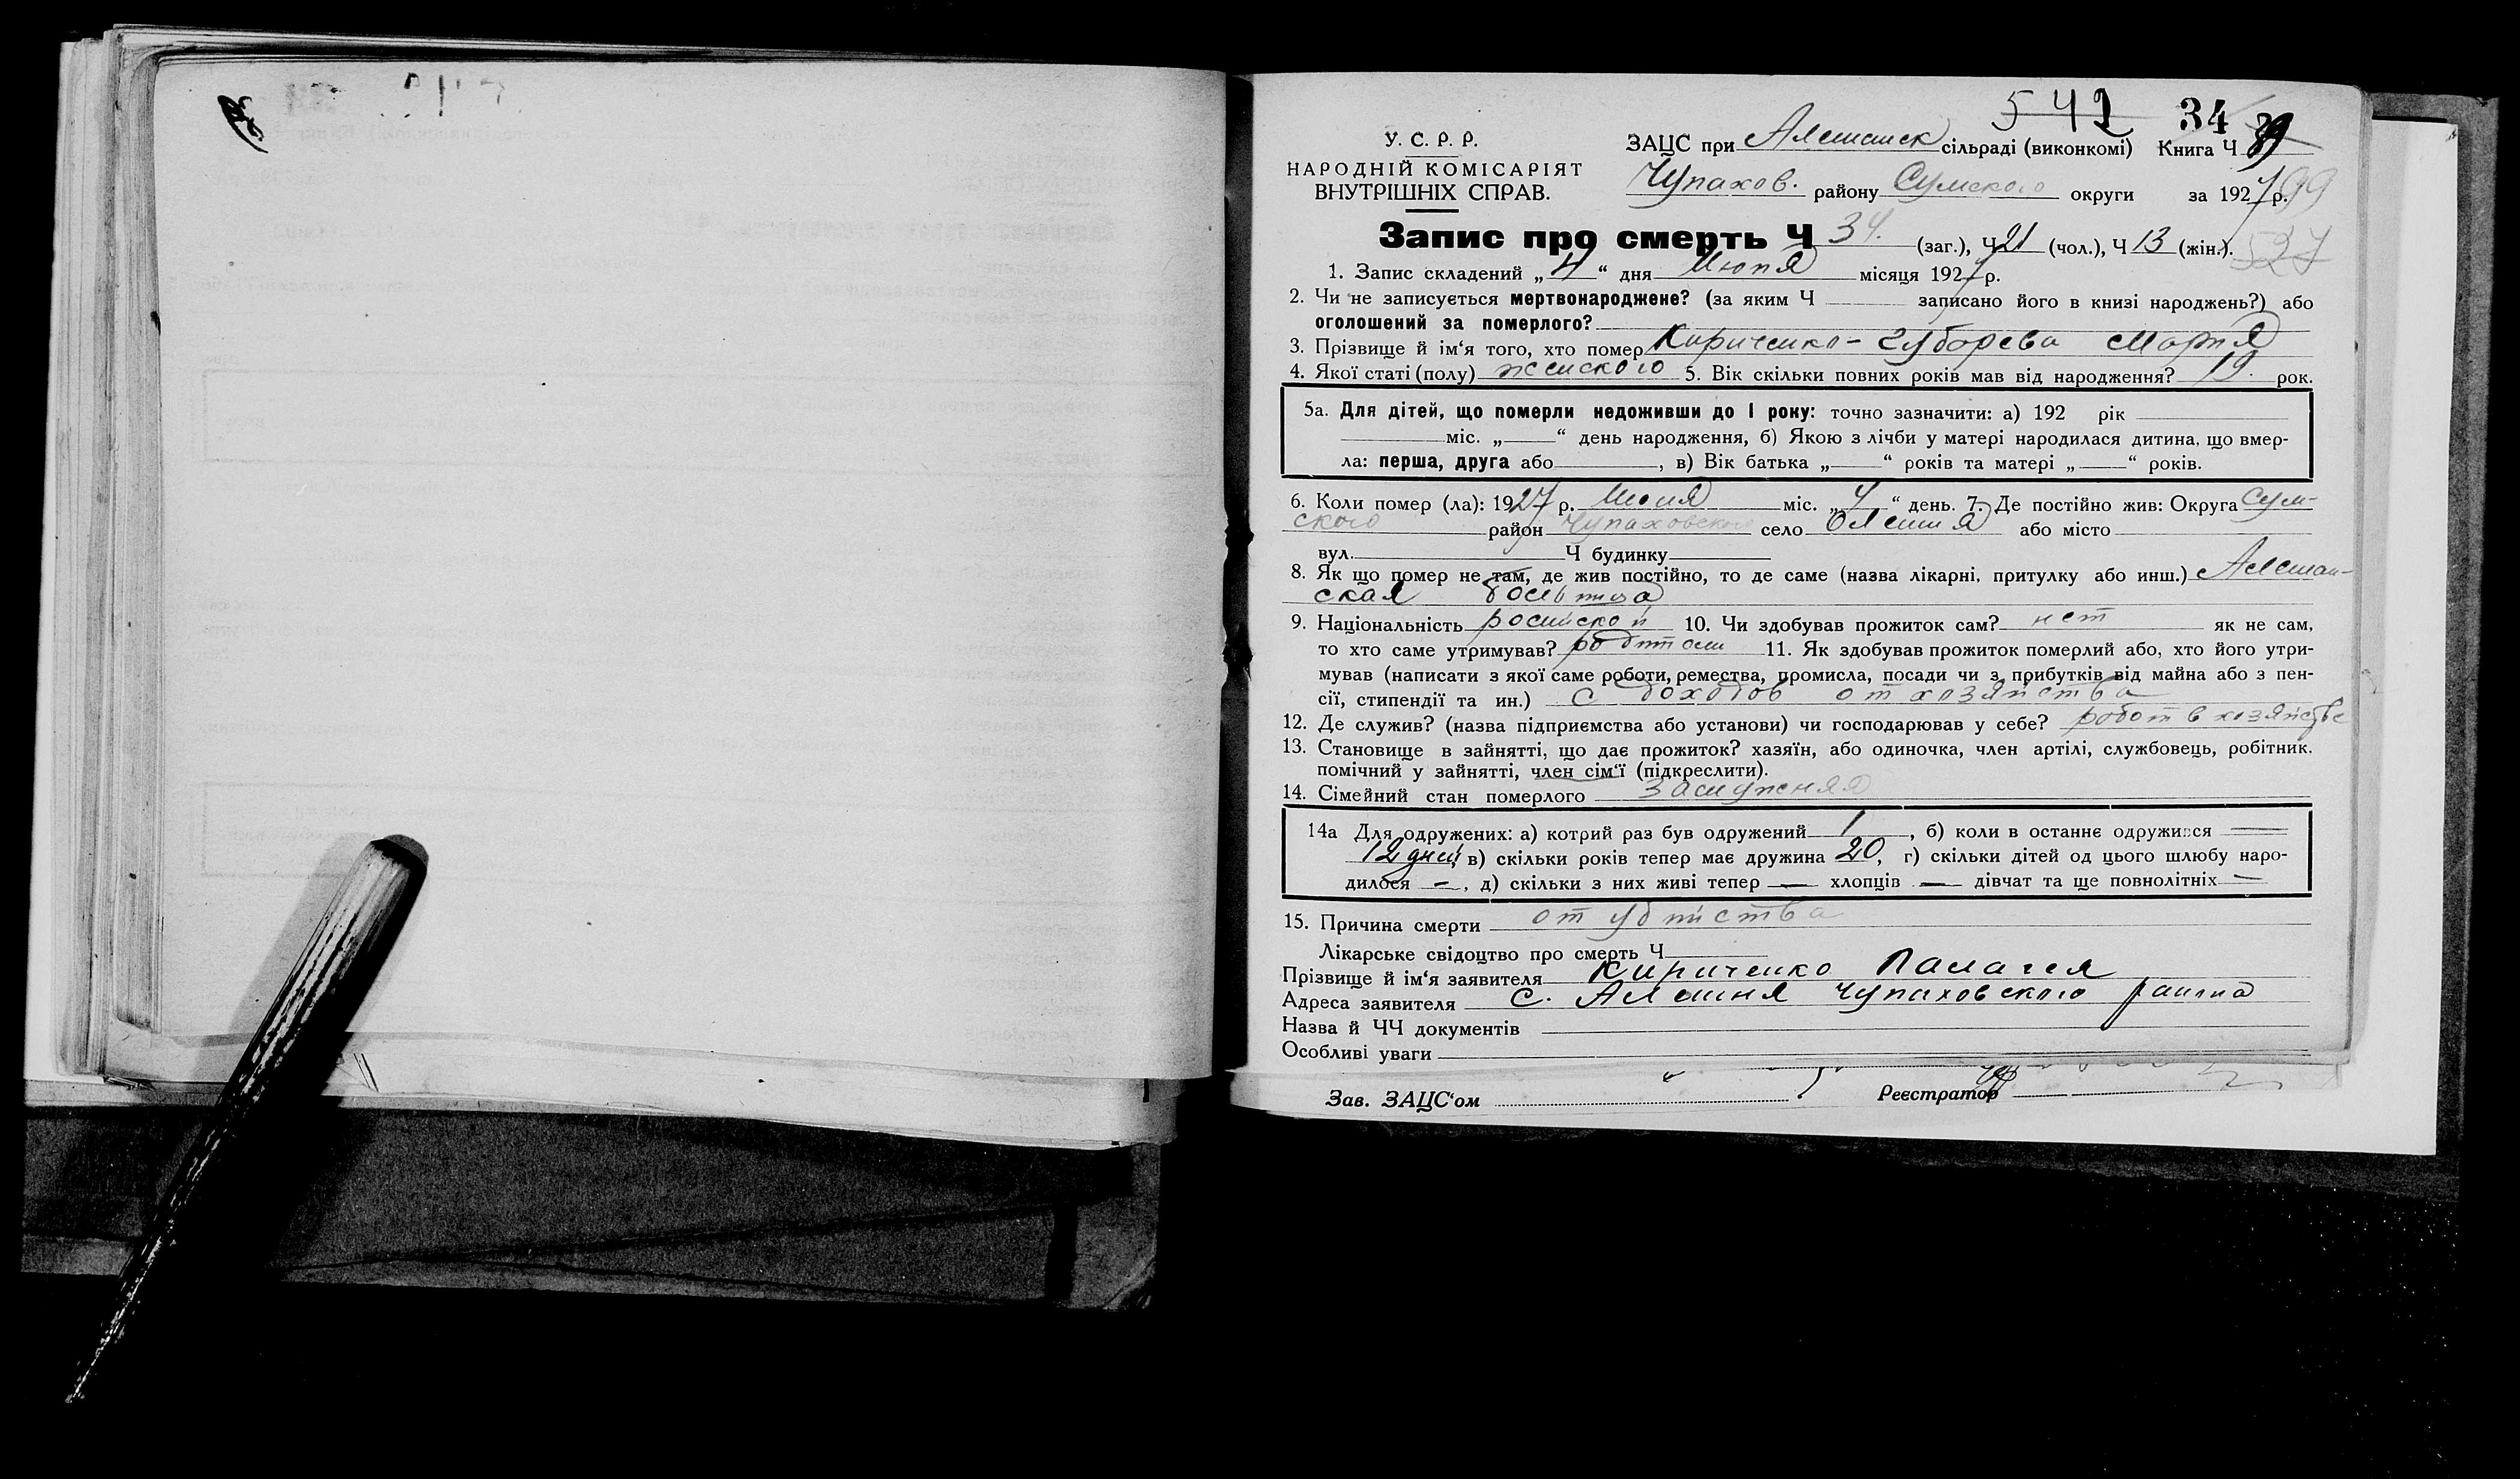 542 34
У. С. Р. Р.
НАРОДНІЙ КОМІСАРІЯТ
ВНУТРІШНІХ СПРАВ.
ЗАЦС при Алешанск сільраді (виконкомі) Книга Ч
Чупахов. району Сумского округи за 1927 р. 99
Запис про смерть Ч 34. (заг.), Ч 21 (чол.), Ч 13 (жін.). 527
1. Запис складений „4“ дня Июня місяця 1927 р.
2. Чи не записується мертвонароджене? (за яким Ч записано його в книзі народжень?) або
оголошений за померлого?
3. Прізвище й ім‘я того, хто помер Кириченко - Губарева Мария
4. Якої статі (полу) женского 5. Вік скільки повних років мав від народження? 19. рок.
5а. Для дітей, що померли недоживши до 1 року: точно зазначити: а) 192 рік
міс. „ “ день народження, б) Якою з лічби у матері народилася дитина, що вмер-
ла: перша, друга або , в) Вік батька „ “ років та матері „ “ років.
6. Коли помер (ла): 1927 р. Июня міс. „4“ день. 7. Де постійно жив: Округа Сум-
ского район Чупаховского село Олешня або місто
вул. Ч будинку
8. Як що помер не там, де жив постійно, то де саме (назва лікарні, притулку або инш.) Алешан-
ская больница
9. Національність росийской 10. Чи здобував прожиток сам? нет як не сам,
то хто саме утримував? 11. Як здобував прожиток померлий або, хто його утри-
мував (написати з якої саме роботи, ремества, промисла, посади чи з прибутків від майна або з пен-
сії, стипендії та ин.) с доходов от хозяйства
12. Де служив? (назва підприємства або установи) чи господарював у себе? робот в хозяйстве
13. Становище в зайнятті, що дає прожиток? хазяїн, або одиночка, член артілі, службовець, робітник.
помічний у зайнятті, член сім‘ї (підкреслити).
14. Сімейний стан померлого замужняя
14а Для одружених: а) котрий раз був одружений 1, б) коли в останнє одружився —
12 дней, в) скільки років тепер має дружина 20, г) скільки дітей од цього шлюбу наро-
дилося —, д) скільки з них живі тепер — хлопців — дівчат та ще повнолітніх —
15. Причина смерти от убийства
Лікарське свідоцтво про смерть Ч
Прізвище й ім‘я заявителя Кириченко Палагея
Адреса заявителя с. Алешня Чупаховского раиона
Назва й ЧЧ документів
Особливі уваги
Зав. ЗАЦС‘ом Реєстратор